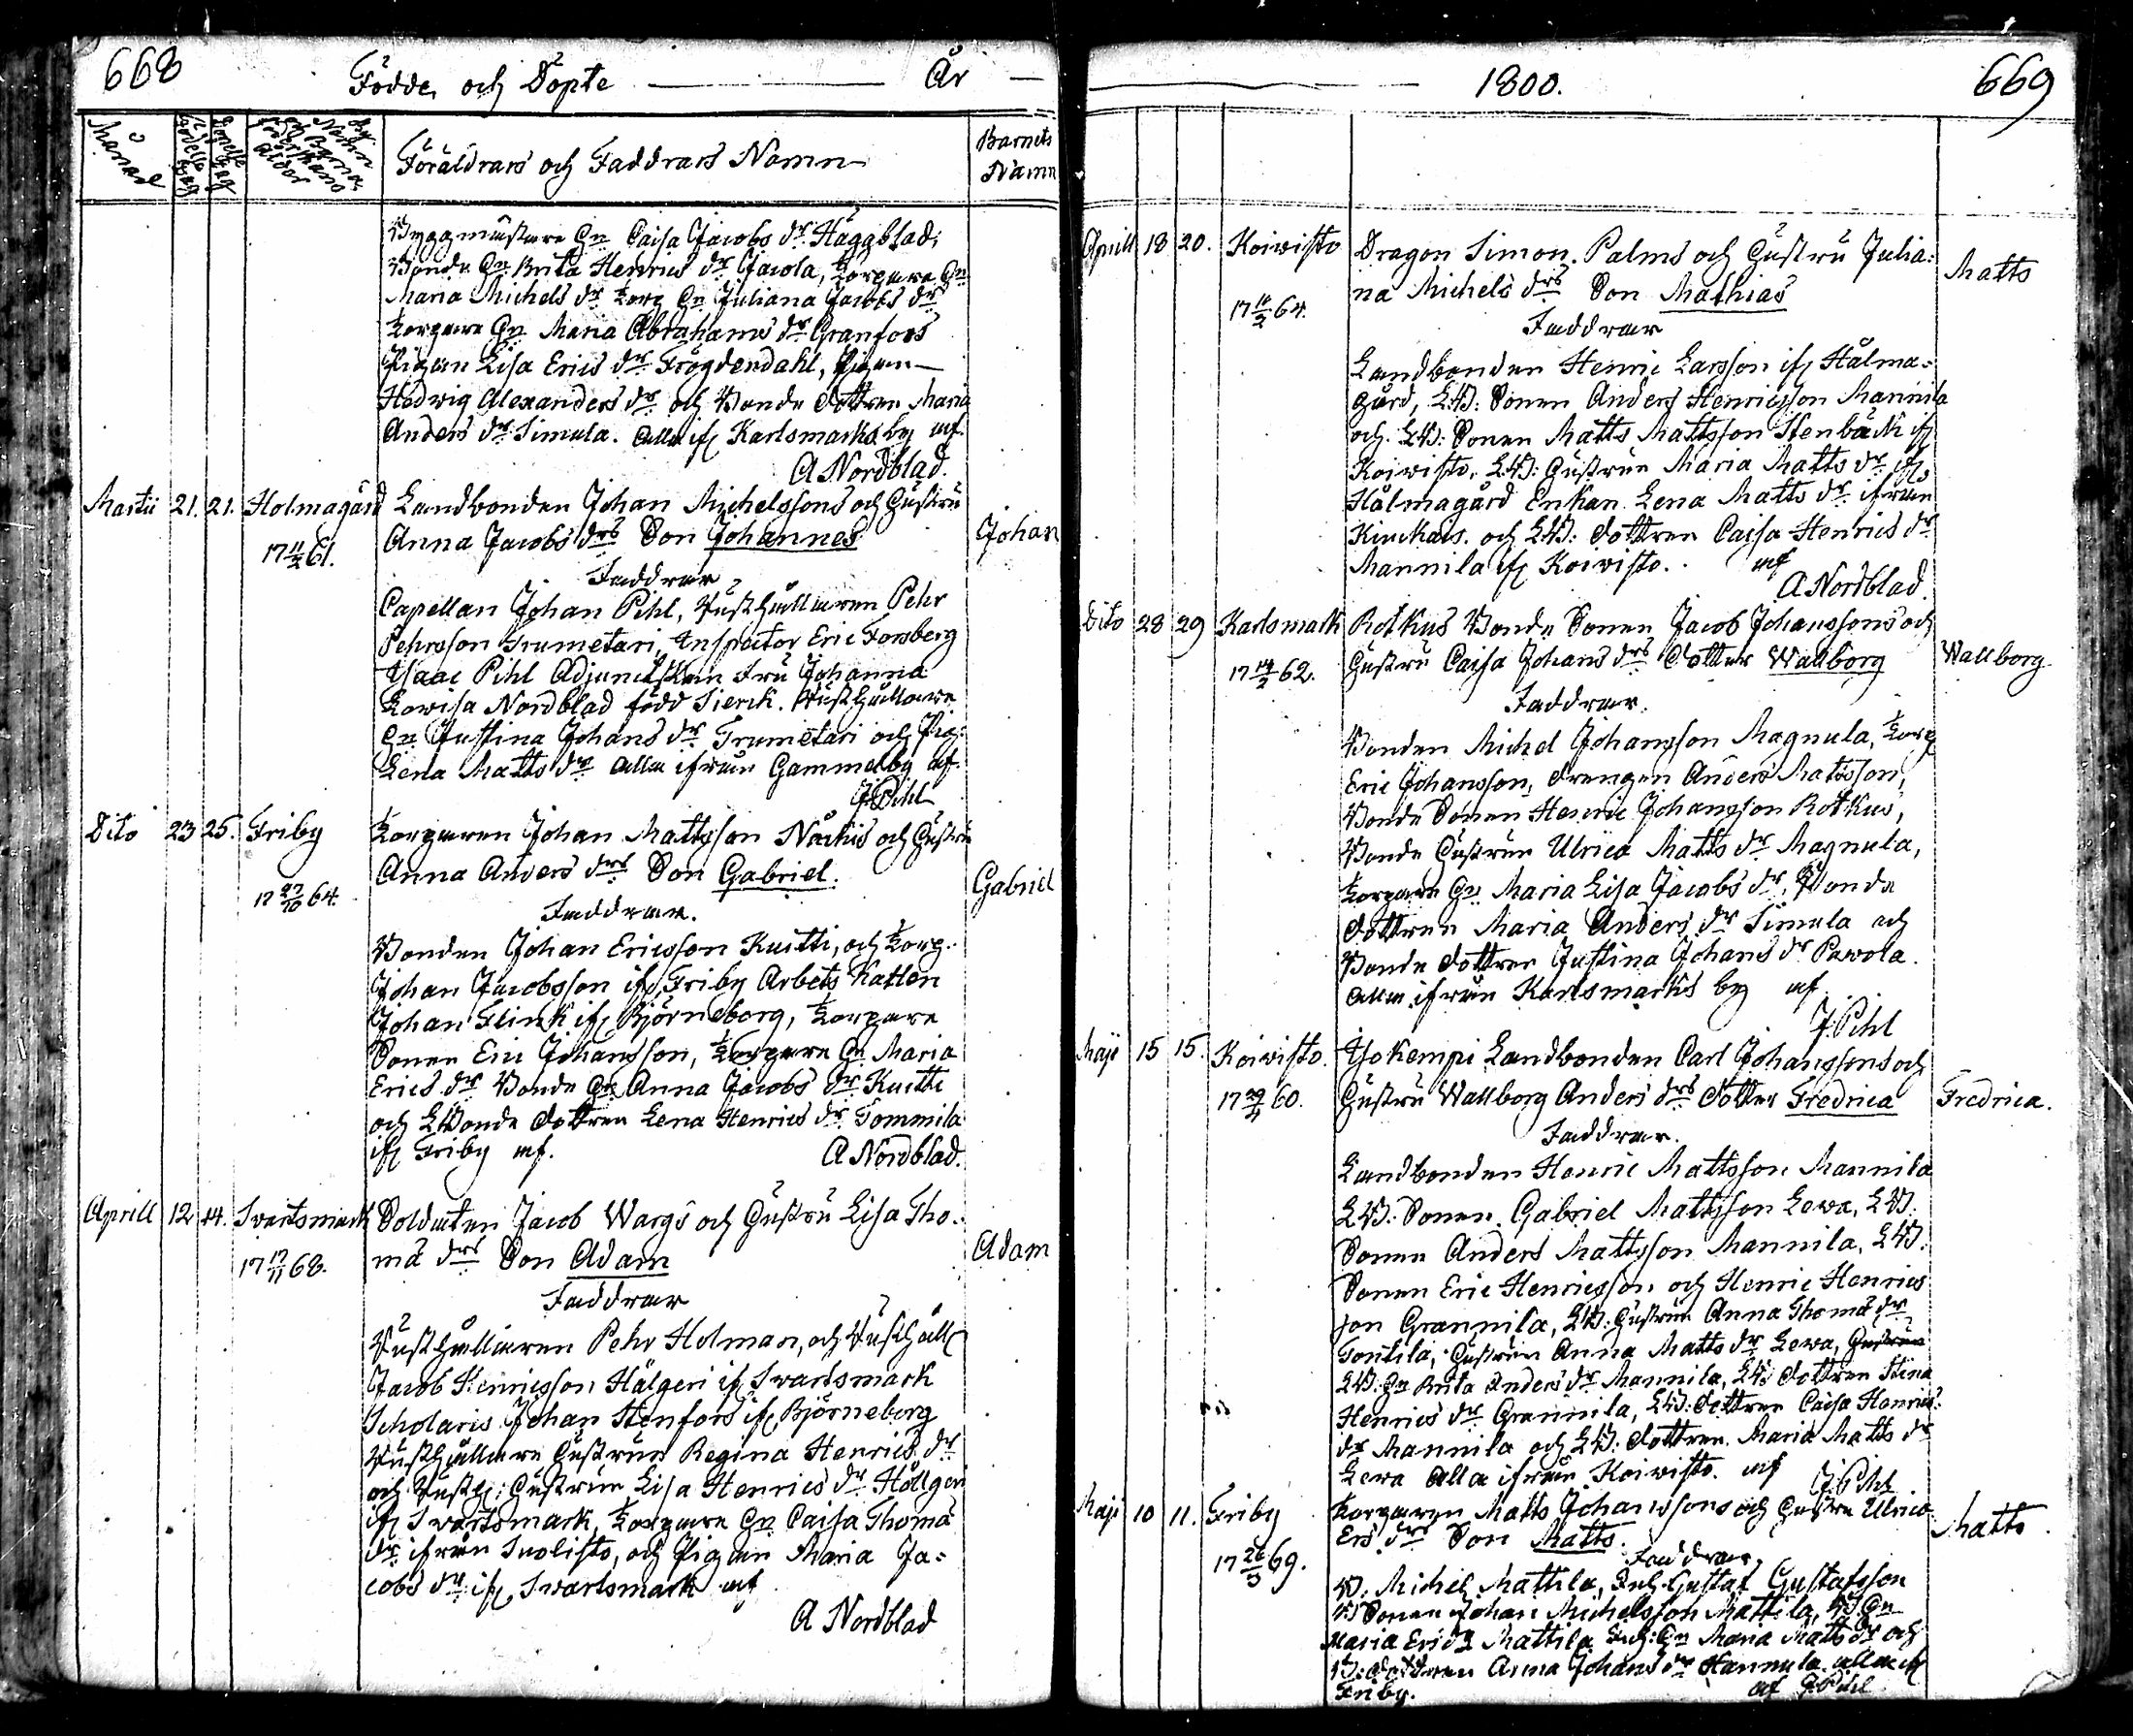 668
Födde och Döpte År
Månad
Födelse Dag
Döpelse Dag
Föräldrars och Faddrars Namn
Barnets Namn
Byggmästare Hu Caisa Jacobs dr Häggblad,
Bonde Hu Brita Henrics dr Jacola, Torpare Hu
Maria Michels dr Torp Hu Juliana Jacobs dr
Torpare Hu Maria Abrahams dr Granfors
Pigan Lisa Erics dr Frögdendahl, Pigan
Hedwig Alexanders dr och Bonde dottren Maria
Anders dr Simula. alla ifr Karlsmarks by af
A Nordblad.
Martii 21. 21. Holmagård Landbonden Johan Michelssons och Hustru
17 11/2 61. Anna Jacobs drs Son Johannes Johan
Faddrar
Capellan Johan Pihl, Rusthållaren Pehr
Pehrsson Trumetari, Inspector Eric Forsberg
Isaac Pihl Adjunctskan Fru Johanna
Lowisa Nordblad född Sierck. Rusthållare
Hu Justina Johans dr Trumetari och Pig:
Lena Matts dr alla ifrån Gammelby af.
J Pihl
Dito 23 25. Friby Torparen Johan Mattsson Näckis och Hustru
17 27/10 64. Anna Anders drs Son Gabriel. Gabriel
Faddrar.
Bonden Johan Ericsson Kuitti, och Torp.
Johan Jacobsson ifr Friby Arbets Karlen
Johan Flink ifr Björneborg, Torpare
Sonen Eric Johansson, Torpare Hu Maria
Erics dr Bonde Hu Anna Jacobs dr Kuitti
och LBonde dottren Lena Henrics dr Tommila
ifr Friby af.
A Nordblad.
Aprill 12 14. Svartsmark Soldaten Jacob Wargs och Hustru Lisa Tho-
17 17/11 68. mæ drs Son Adam Adam
Faddrar
Rusthållaren Pehr Holman, och Rusthåll
Jacob Henricsson Hälgeri ifr Svartsmark
Scholaris Johan Stenfors ifr Björneborg
Rusthållare Hustrun Regina Henrics dr
och Rusth: Hustrun Lisa Henrics dr Hällgeri
ifr Svartsmark, Torpare Hu Caisa Thomæ
dr ifrån Suolisto, och Pigan Maria Ja=
cobs dr ifr Svartsmark af
A Nordblad
1800.
669
Aprill 18 20. Koivisto Dragon Simon Palms och Hustru Julia:
17 10/2 64. na Michels drs Son Mathias Matts
Faddrar
Landbonden Henric Larsson ifr Hålma=
gård, LB: Sonen Anders Henricsson Mannila
och LB: Sonen Matts Mattsson Stenbäck ifr
Koivisto, LB: Hustrun Maria Matts dr ifr
Hålmagård Enkan Lena Matts dr ifrån
Kinckais. och LB: dottren Caisa Henrics dr
Mannila ifr Koivisto. af
A Nordblad.
Dito 28 29 Karlsmark Rotkus Bonde Sonen Jacob Johanssons och
17 14/2 62. Hustru Caisa Johans drs Dotter Wallborg Wallborg
Faddrar.
Bonden Michel Johansson Magnula, Torp
Eric Johansson, drengen Anders Matsson,
Bonde Sonen Henric Johansson Rotkus,
Bonde Hustrun Ulrica Matts dr Magnula,
Torpare Hu Maria Lisa Jacobs dr, Bonde
dottren Maria Anders dr Simula och
Bonde dottren Justina Johans dr Pavola.
alla ifrån Karlsmarks by af
J. Pihl
Maji 15 15. Koivisto. Yokempi Landbonden Carl Johanssons och
17 29/4 60. Hustru Wallborg Anders drs Dotter Fredrica Fredrica.
Faddrar.
Landbonden Henric Mattsson Mannila
LB: Sonen Gabriel Mattsson Lewa, LB:
Sonen Anders Mattsson Mannila, LB:
Sonen Eric Henricsson och Henric Henrics
son Grannila, LB: Hustrun Anna Thomæ dr
Tontila, Hustrun Anna Matts dr Lewa, Hustrun
LB: Hu Brita Anders dr Mannila, LB: dottren Stina
Henrics dr Grannila, LB: dottren Caisa Henrics
dr Mannila och LB: dottren Maria Matts dr
Lewa alla ifrån Koivisto. af
J Pihl
Maji 10 11. Friby Torparen Matts Johanssons och Hustru Ulrica
17 26/3 69. Ers drs Son Matts. Matts
Faddrar
B: Michel Mattila, Gustaf Gustafsson
B: Sonen Johan Michelsson Mattila, B: Hu
Maria Ers dr Mattila Hu Maria Matts dr och
B: dottren Anna Johans dr Hannula alla ifr
Friby. af J Pihl